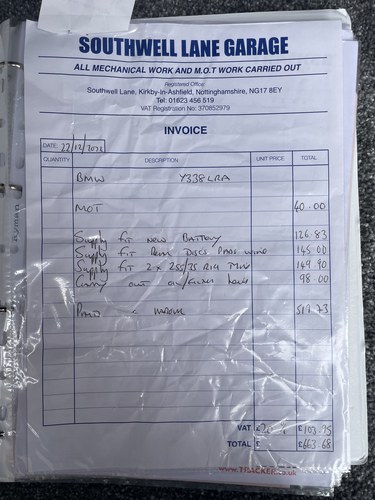 SOUTHWELL LANE GARAGE
ALL MECHANICAL WORK AND M.O.T WORK CARRIED OUT
Registered Office
Southwell Lane, Kirkby-In-Ashfield, Nottinghamshire, NG17 8EY
Tel: 01623 456 519
VAT Registration No: 370852979
INVOICE
DATE: 22/12/2022
QUANTITY DESCRIPTION UNIT PRICE TOTAL
BMW Y338LRA
MOT 40.00
Supply fit New Battery 126.83
Supply fit Rear Discs Pads 145.00
Supply fit 2 x 149.90
Carry out oil/filter 98.00
VAT £103.95
TOTAL £ £663.68